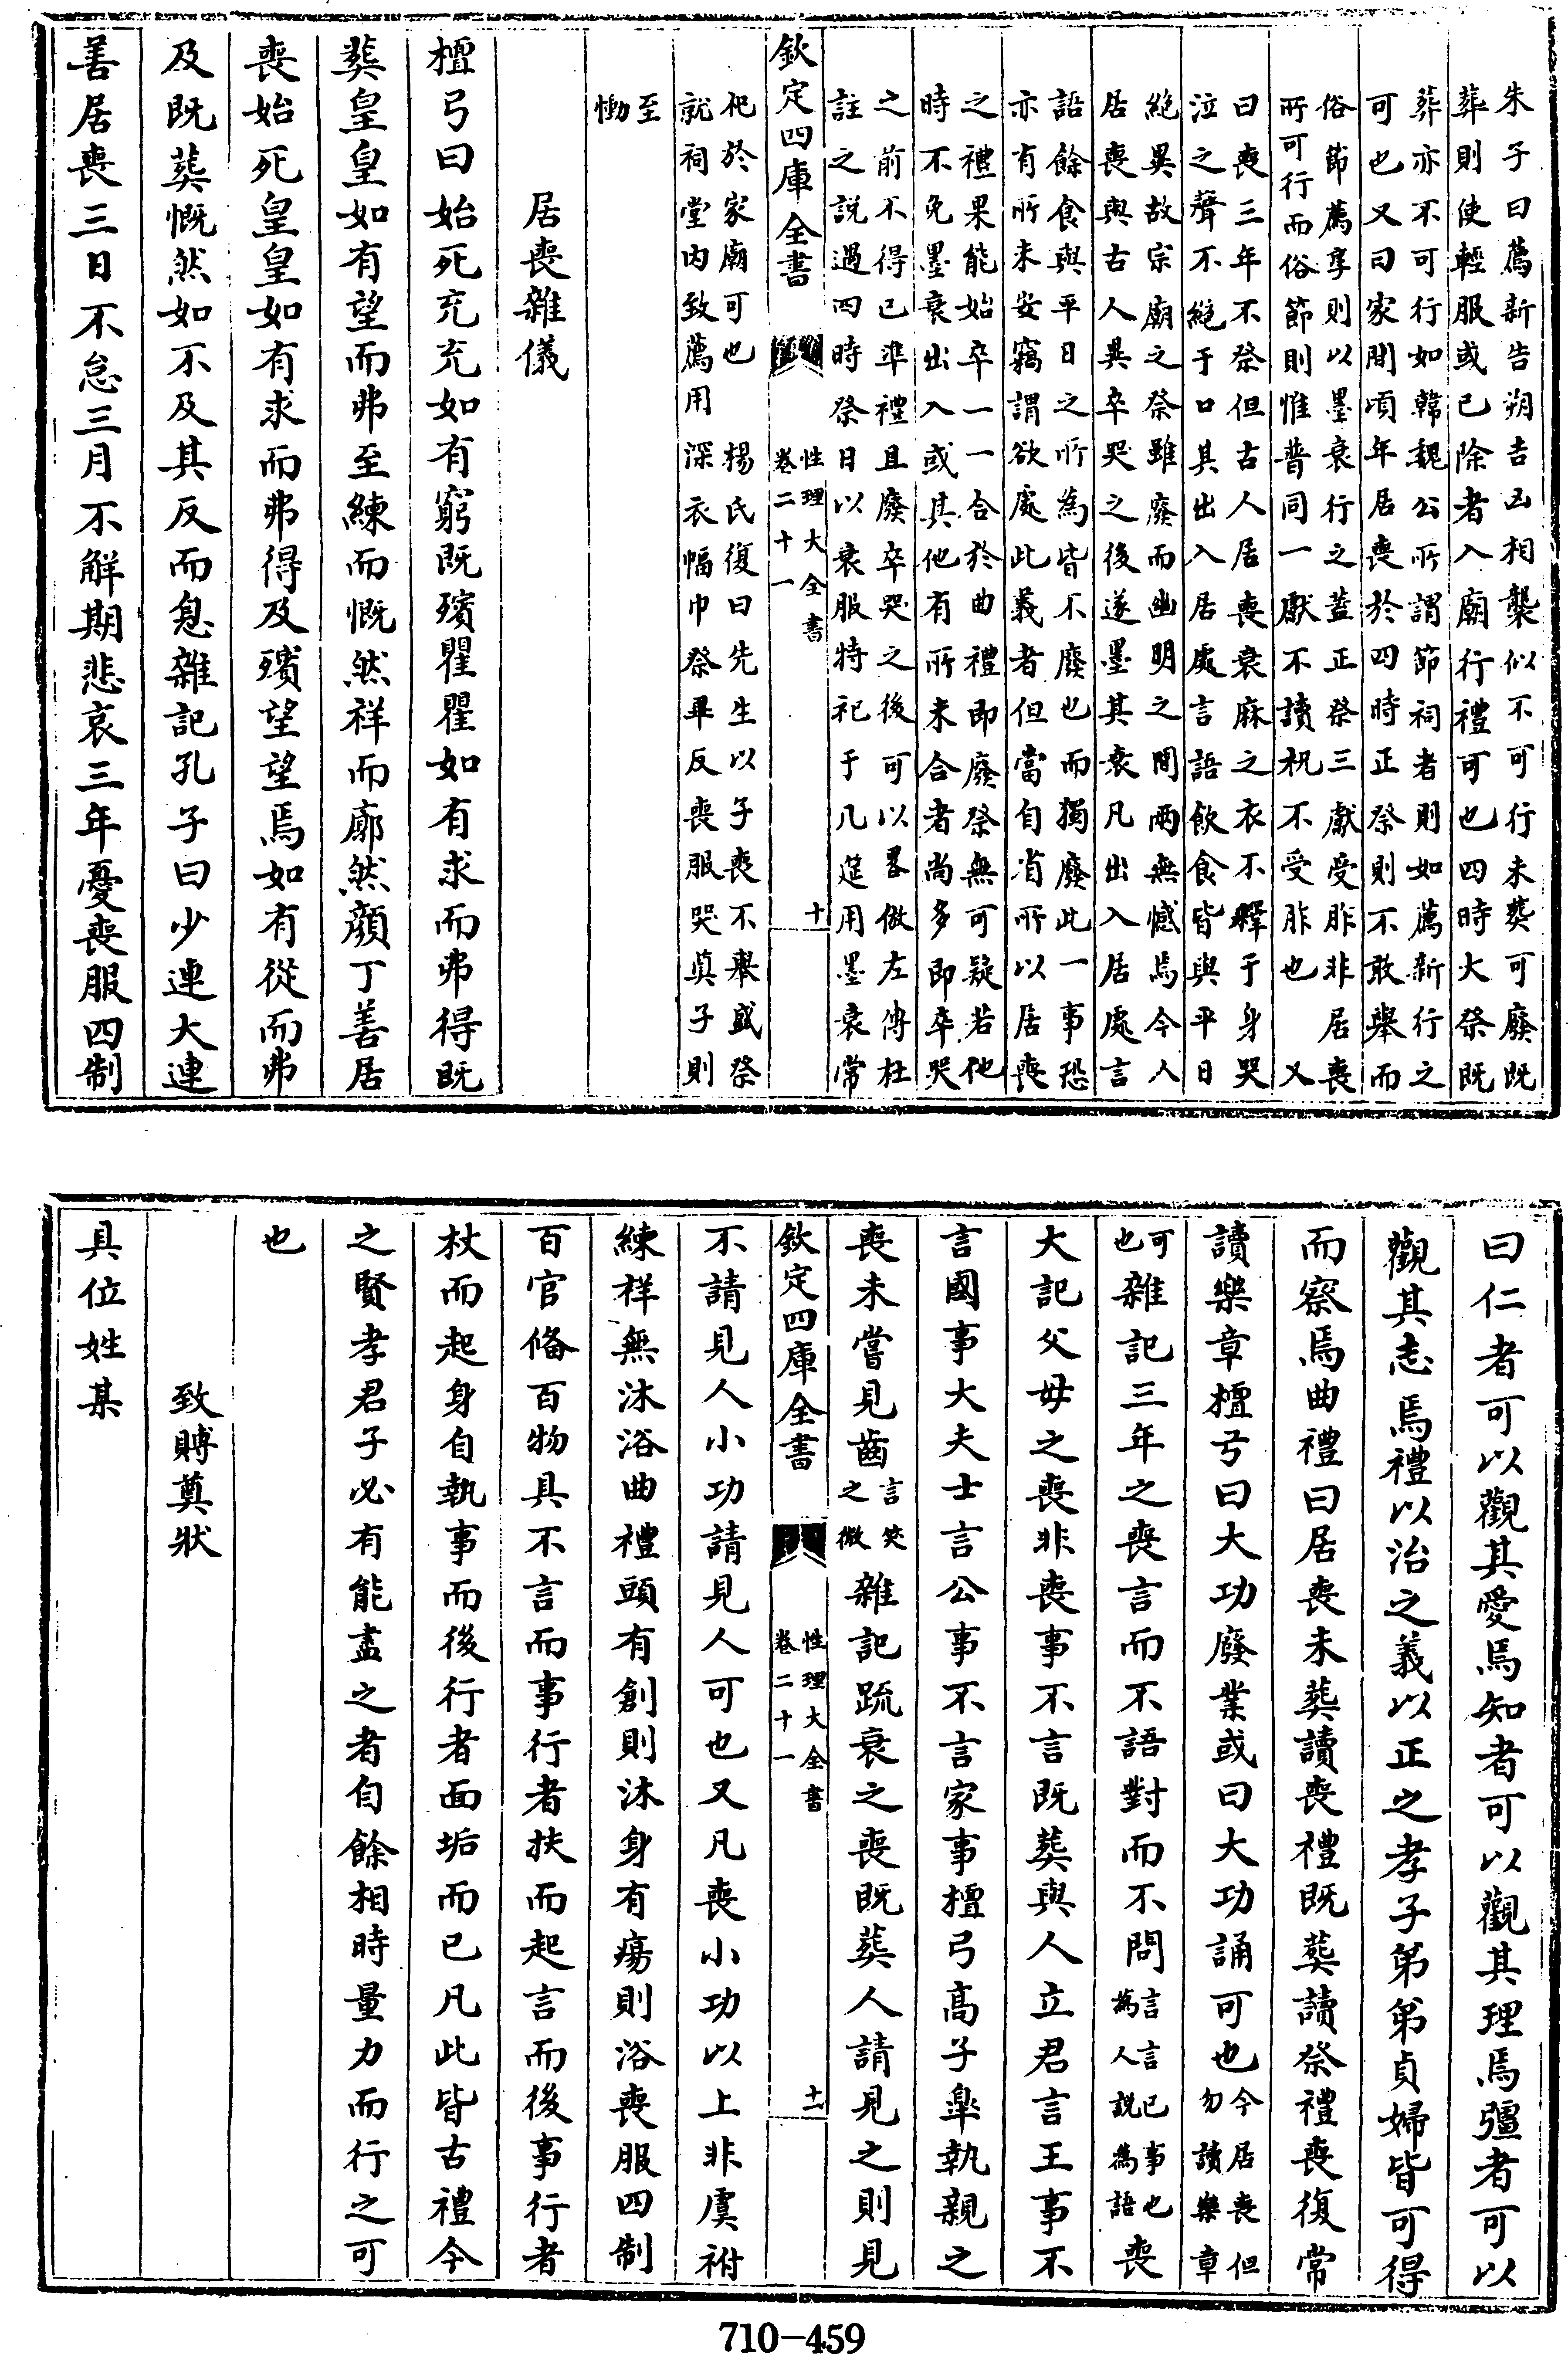 朱子曰薦新告朔吉凶相襲似不可行未葬可廢既
葬則使輕服或已除者入廟行禮可也四時大祭既
葬亦不可行如韓魏公所謂節祠者則如薦新行之
可也又曰家間頃年居喪於四時正祭則不敢舉而
俗節薦享則以墨衰行之蓋正祭三獻受胙非居喪
所可行而俗節則惟普同一獻不讀祝不受胙也 又
曰喪三年不祭但古人居喪衰麻之衣不釋于身哭
泣之聲不絶于口其出入居處言語飲食皆與平日
絶異故宗廟之祭雖廢而幽明之間兩無憾焉今人
居喪與古人異卒哭之後遂墨其衰凡出入居處言
詔餘食與平日之所為皆不廢也而獨廢此一事恐
亦有所未安竊謂欲處此義者但當自省所以居喪
之禮果能始卒一一合於曲禮即廢祭無可疑若他
時不免墨衰出入或其他有所未合者尚多即卒哭
之前不得已準禮且廢卒哭之後可以畧倣左傳杜
註之説過四時祭日以衰服特祀于几筵用墨衰常
欽定四庫全書 性理大全書 卷二十一 十
祀於家廟可也 楊氏復曰先生以子喪不舉盛祭
就祠堂内致薦用深衣幅巾祭畢反喪服哭奠子則
至
慟
居喪雜儀
檀弓曰始死充充如有窮既殯瞿瞿如有求而弗得既
葬皇皇如有望而弗至練而慨然祥而廓然顔丁善居
喪始死皇皇如有求而弗得及殯望望焉如有從而弗
及既葬慨然如不及其反而息雜記孔子曰少連大連
善居喪三日不怠三月不解期悲哀三年憂喪服四制
曰仁者可以觀其愛焉知者可以觀其理焉彊者可以
觀其志焉禮以治之義以正之孝子弟弟貞婦皆可得
而察焉曲禮曰居喪未葬讀喪禮既葬讀祭禮喪復常
讀樂章檀弓曰大功廢業或曰大功誦可也今居喪但勿讀樂章
可也雜記三年之喪言而不語對而不問言言已事也為人説為語喪
大記父母之喪非喪事不言既葬與人立君言王事不
言國事大夫士言公事不言家事檀弓高子臯執親之
喪未嘗見齒言笑之微雜記疏衰之喪既葬人請見之則見
欽定四庫全書 性理大全書 卷二十一 十一
不請見人小功請見人可也又凡喪小功以上非虞祔
練祥無沐浴曲禮頭有創則沐身有瘍則浴喪服四制
百官備百物具不言而事行者扶而起言而後事行者
杖而起身自執事而後行者面垢而已凡此皆古禮今
之賢孝君子必有能盡之者自餘相時量力而行之可
也
致賻奠狀
具位姓某
710-459